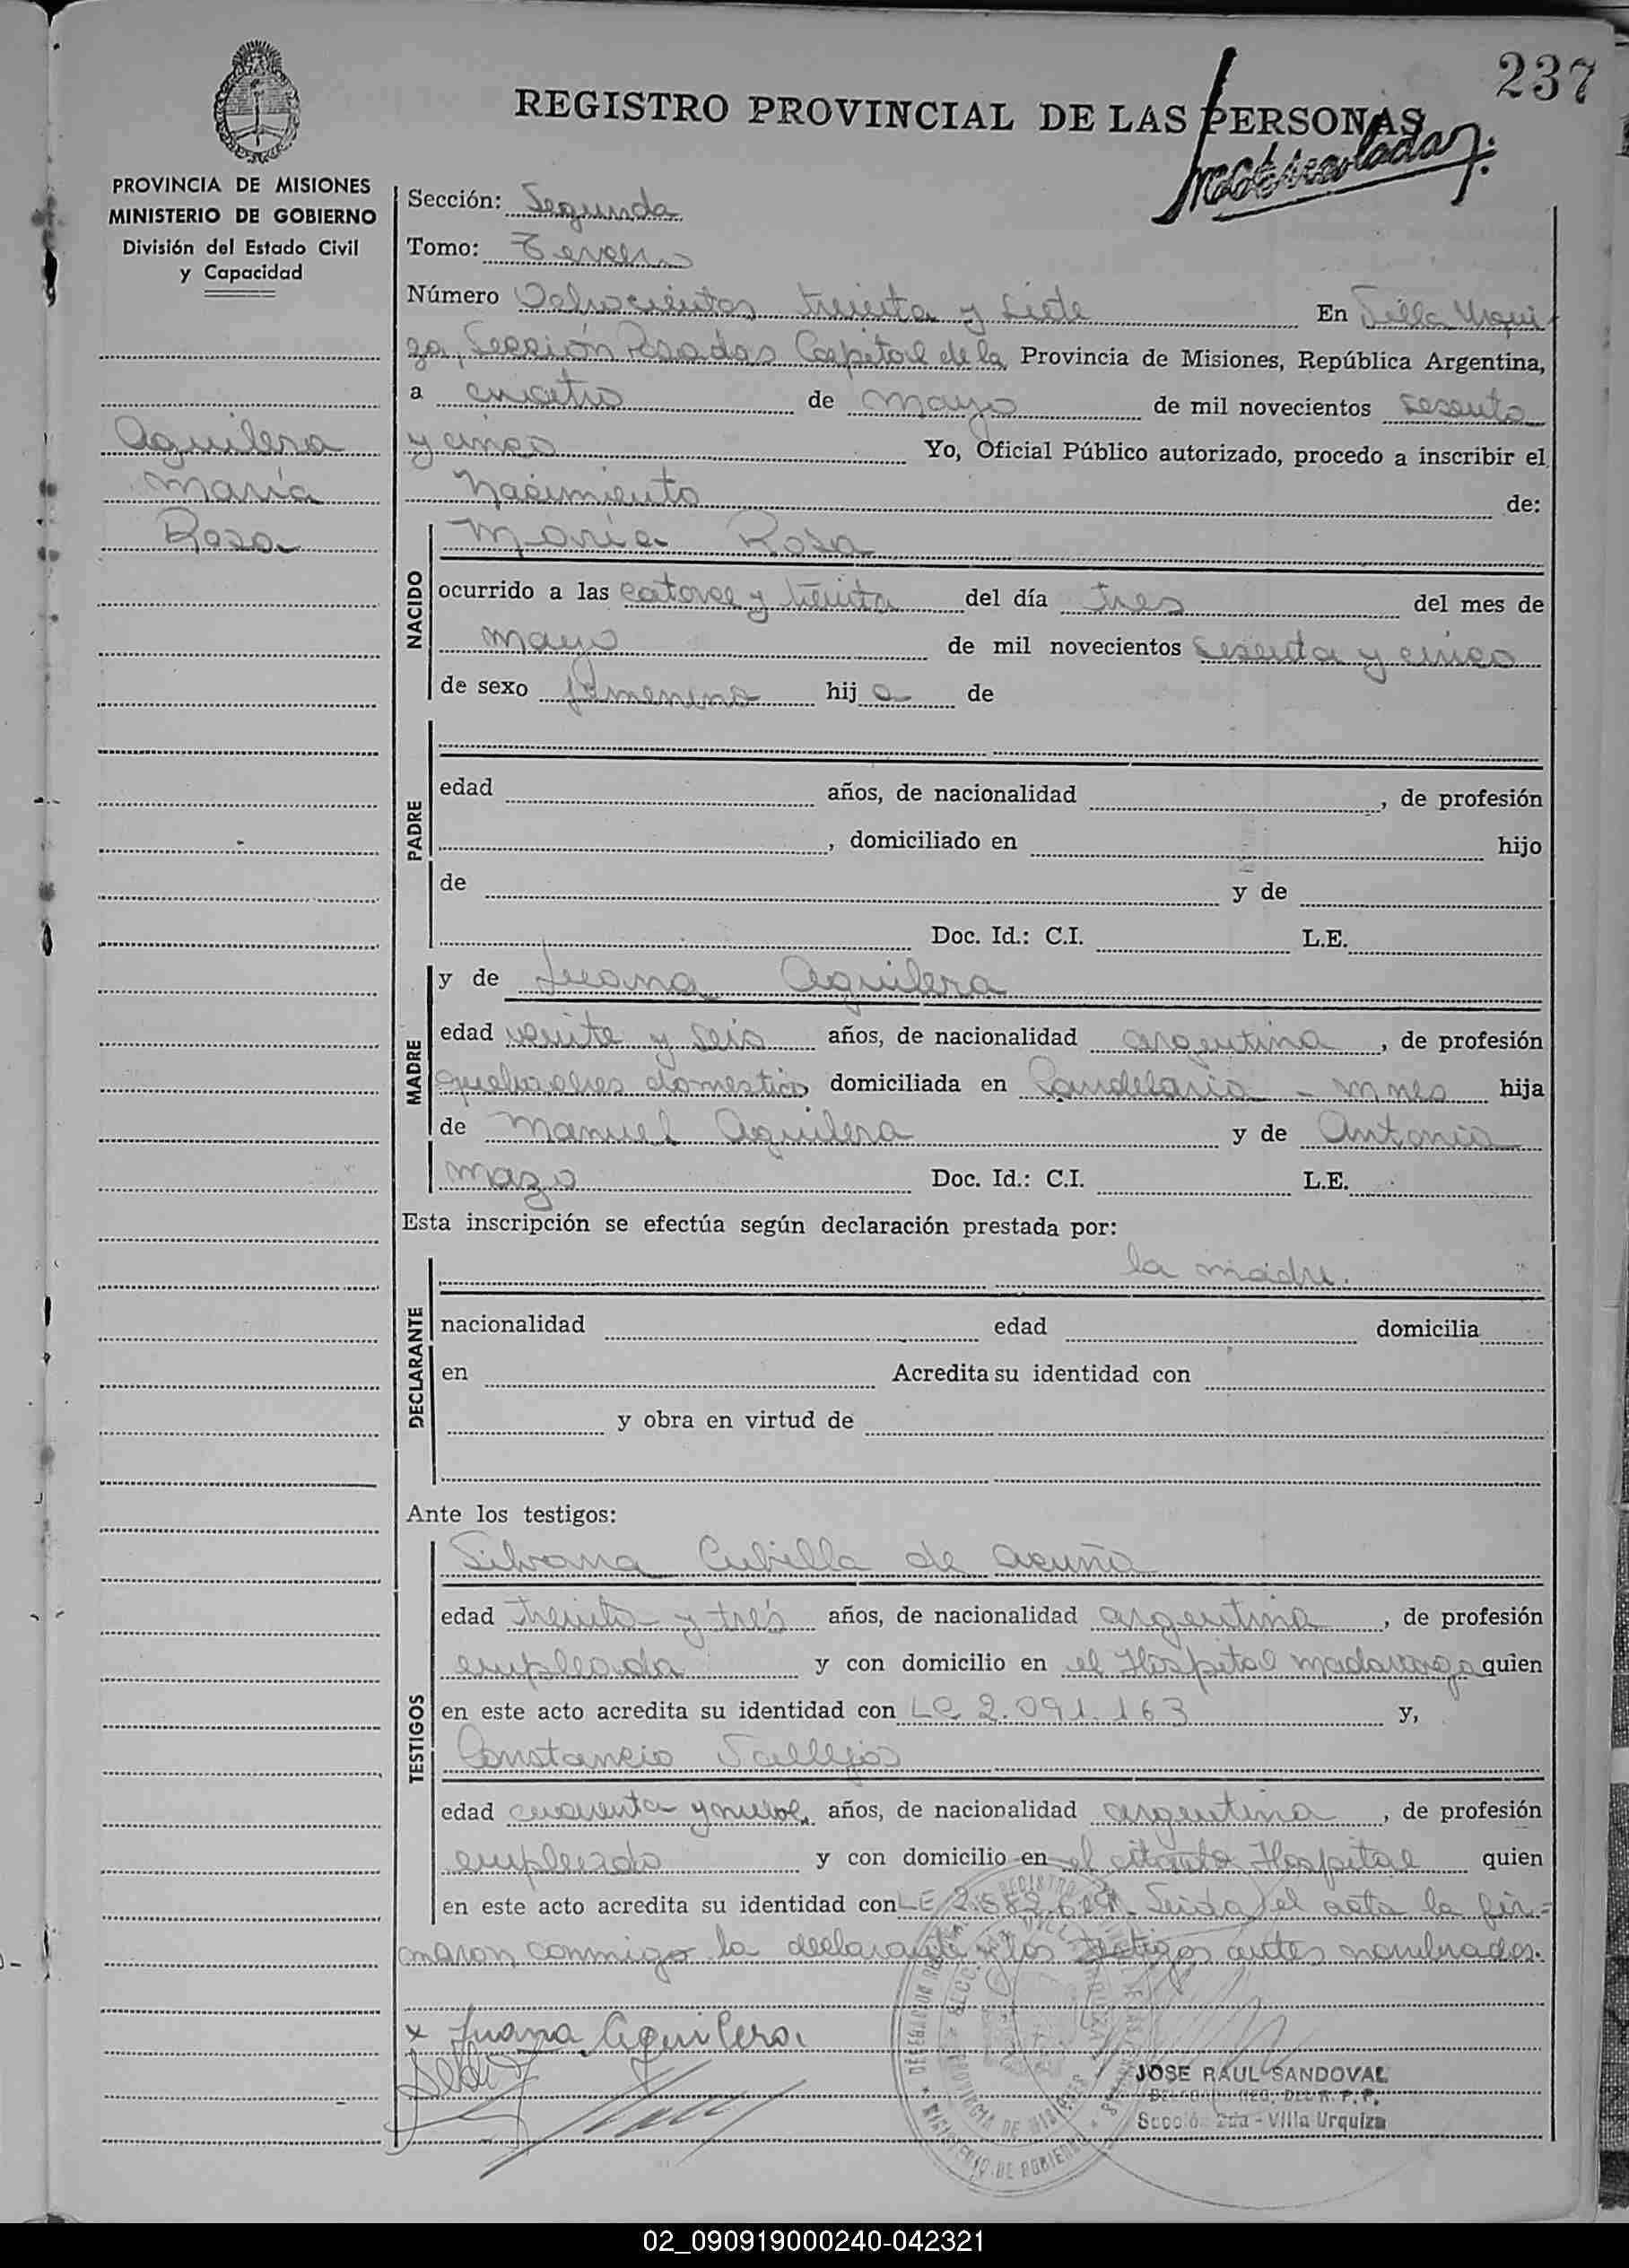 237
REGISTRO PROVINCIAL DE LAS PERSONAS
PROVINCIA DE MISIONES
MINISTERIO DE GOBIERNO
División del Estado Civil
y Capacidad
Aguilera
María
Rosa
Sección: Segunda
Tomo: Tercero
Número Ochocientos treinta y siete En Villa Urqui
za, Sección Posadas Capital de la Provincia de Misiones, República Argentina,
a cuatro de mayo de mil novecientos sesenta
y cinco Yo, Oficial Público autorizado, procedo a inscribir el
Nacimiento de:
NACIDO
María Rosa
ocurrido a las catorce y treinta del día tres del mes de
mayo de mil novecientos sesenta y cinco
de sexo femenino hij a de
PADRE
edad años, de nacionalidad , de profesión
, domiciliado en hijo
de y de
Doc. Id.: C.I. L.E.
MADRE
y de Juana Aguilera
edad veinte y seis años, de nacionalidad argentina, de profesión
quehaceres domestico, domiciliada en Candelaria - Mnes hija
de Manuel Aguilera y de Antonia
Mazo Doc. Id.: C.I. L.E.
Esta inscripción se efectúa según declaración prestada por:
DECLARANTE
la madre.
nacionalidad edad domicilia
en Acredita su identidad con
y obra en virtud de
Ante los testigos:
TESTIGOS
Silvana Cubilla de Acuña
edad treinta y trés años, de nacionalidad argentina, de profesión
empleada y con domicilio en el Hospital Madariaga quien
en este acto acredita su identidad con LC 2.091.163 y,
Constancio Vallejos
edad cuarenta y nueve, años, de nacionalidad argentina, de profesión
empleado y con domicilio en el citado Hospital quien
en este acto acredita su identidad con LE Leida el acta la fir-
maron conmigo la declarante y los testigos antes nombrados.
x Juana Aguilera
JOSE RAUL SANDOVAL
DELEGADO REG. DEL R. P. P.
Sección 2da - Villa Urquiza
02_090919000240-042321